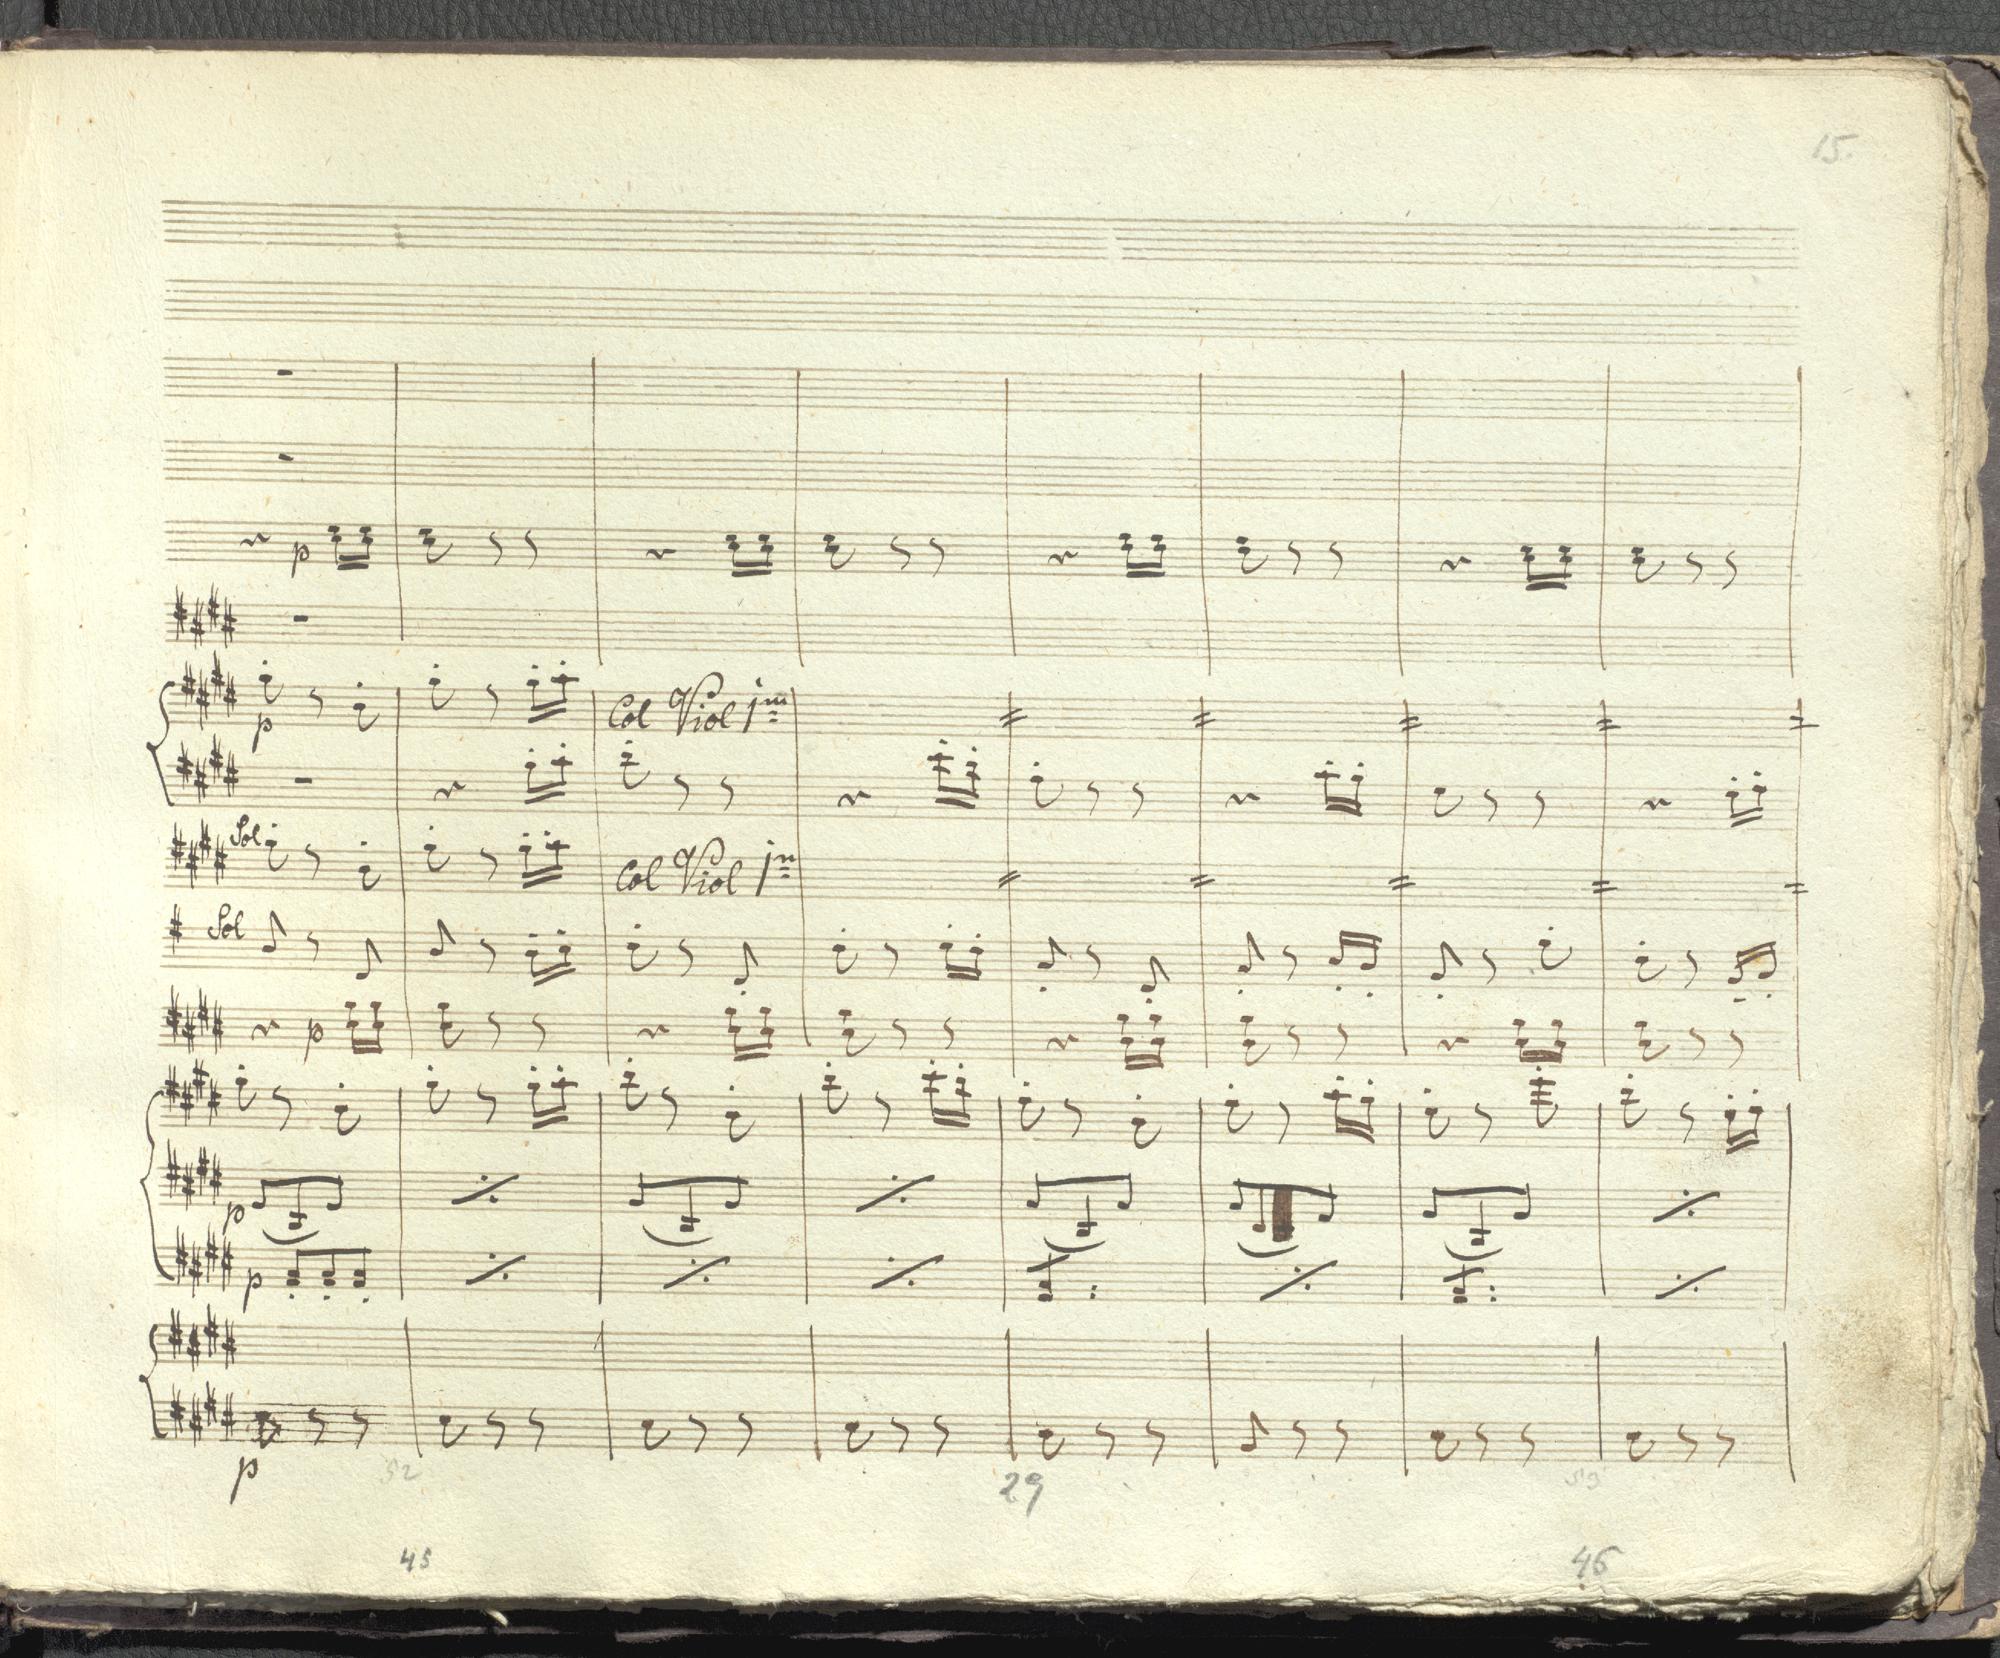 15.
p
p
Col Viol 1m
Sol
Col Viol 1m
Sol
p
p
p
p
52
29
59
45
46